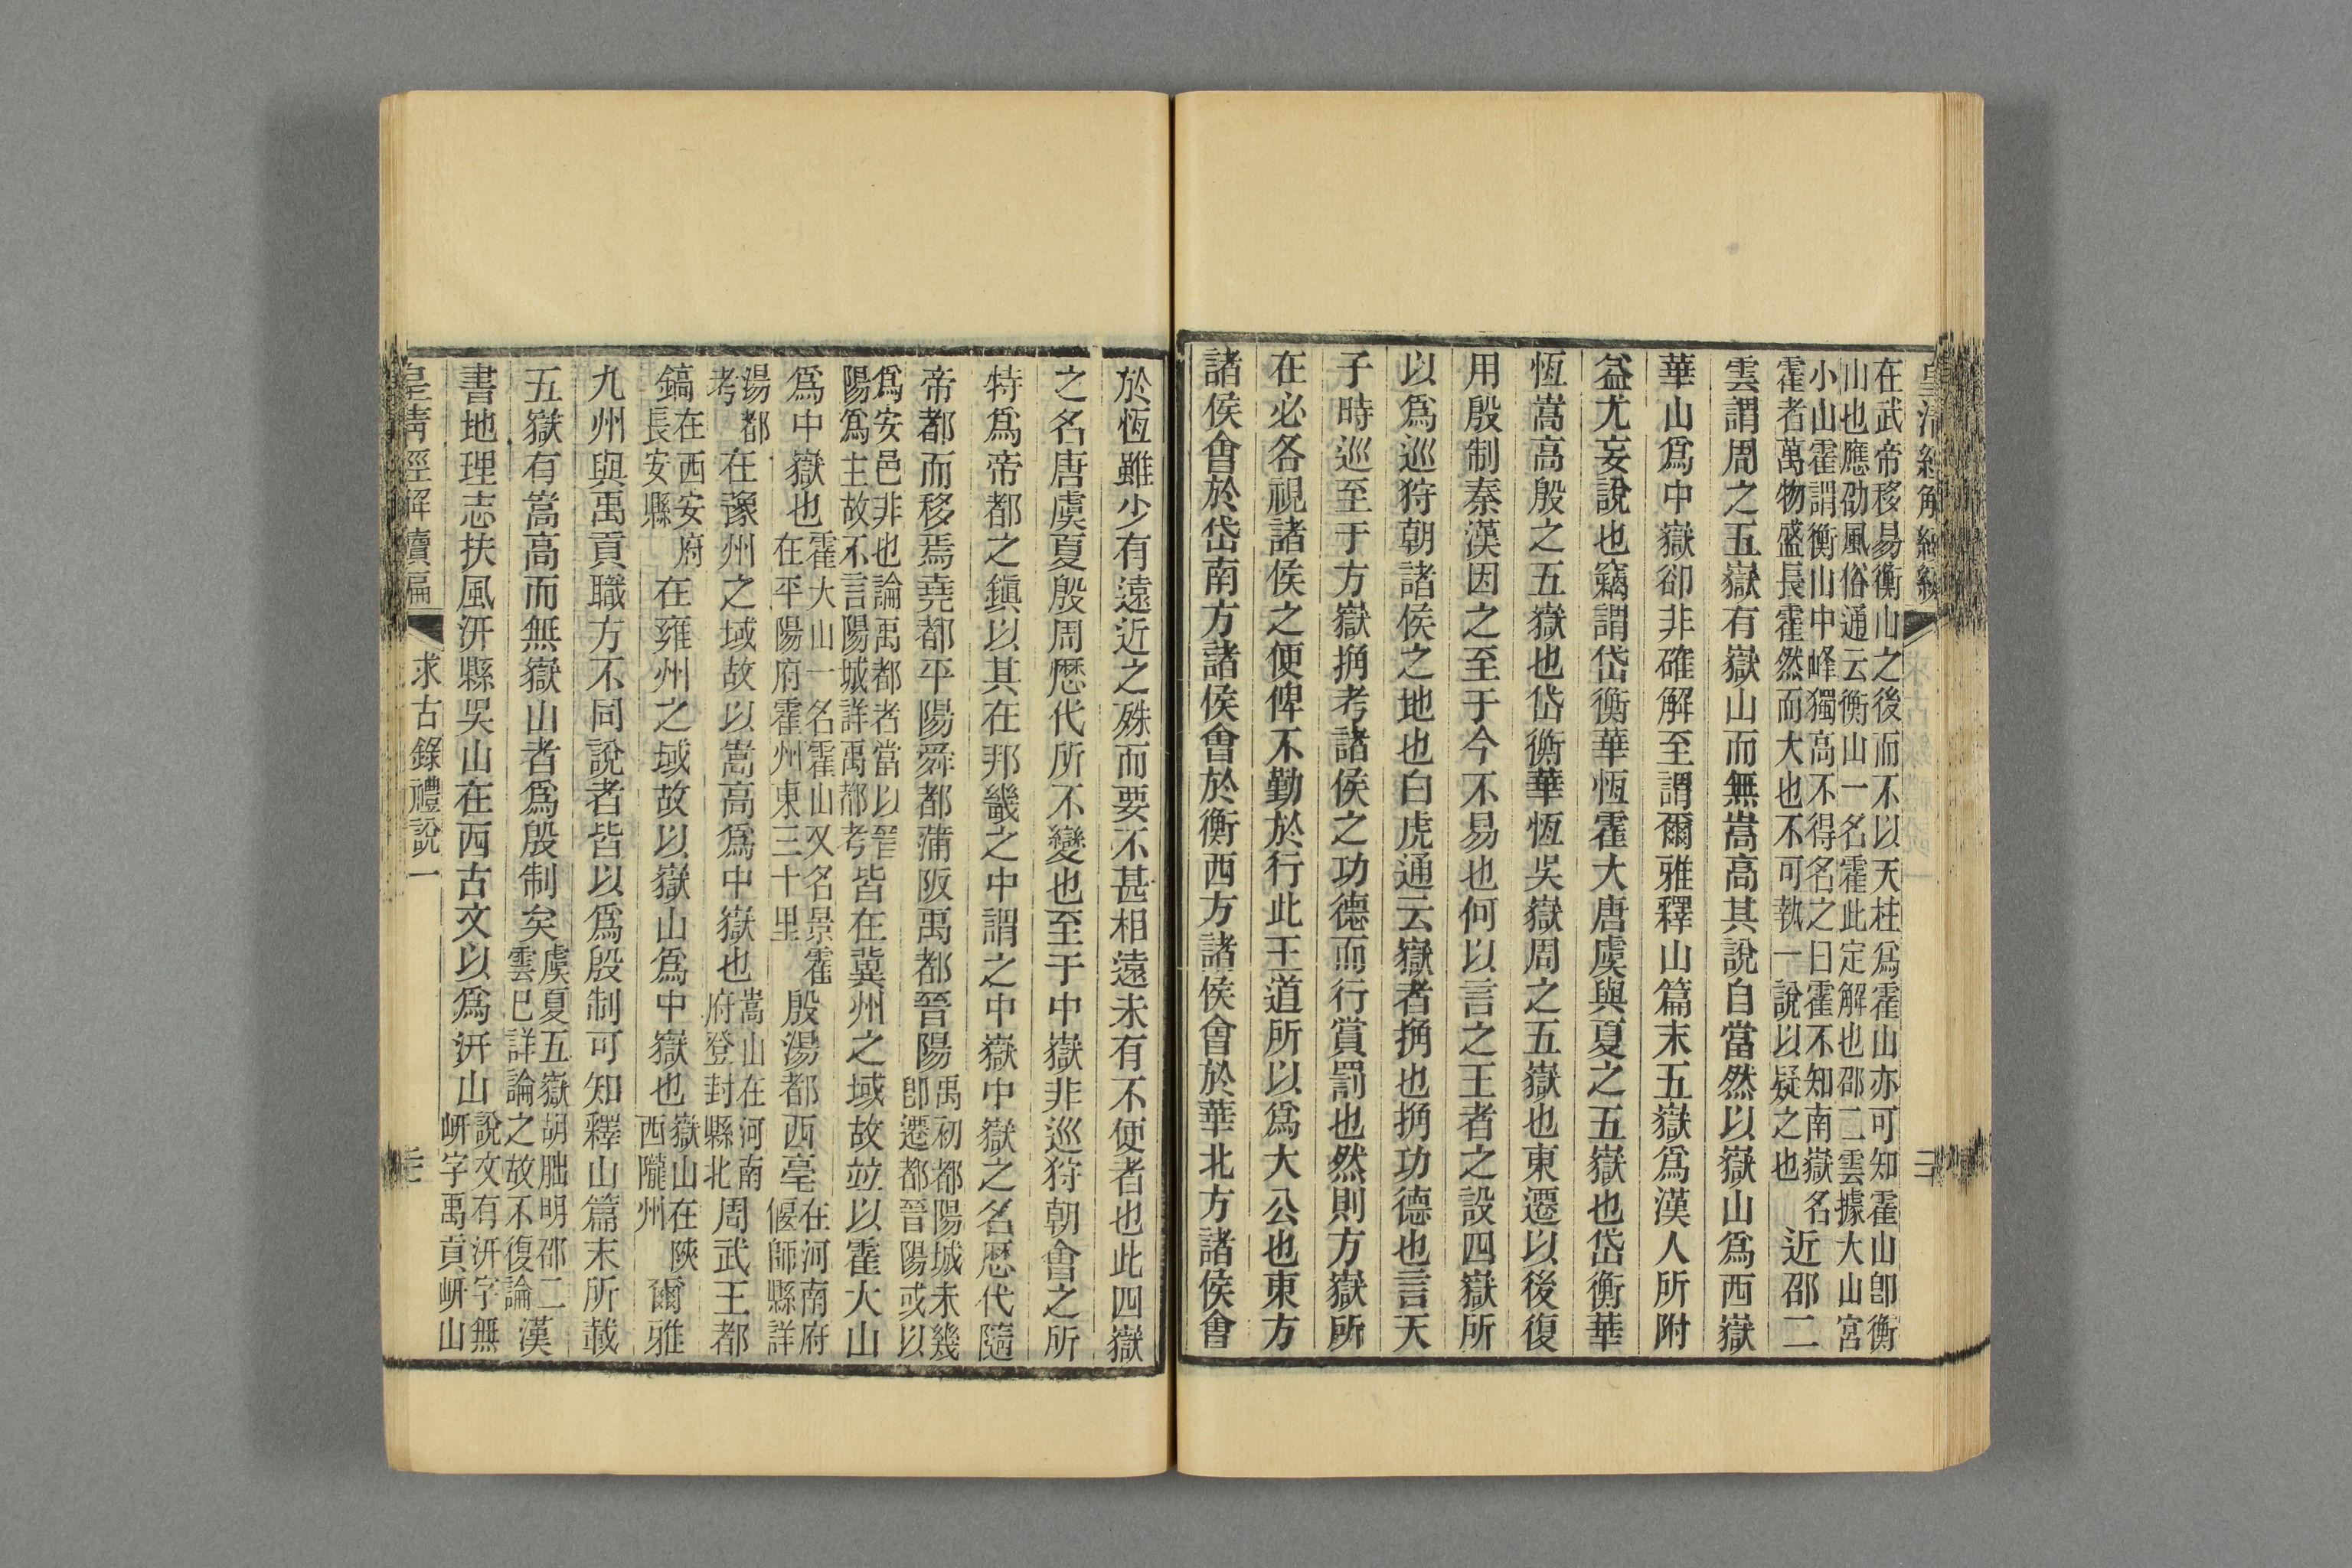 在武帝移易衡山之後而不以天柱爲霍山亦可知霍山卽衡
山也應劭風俗通云衡山一名霍此定解也邵二雲據大山宮
小山霍謂衡山中峰獨高不得名之曰霍不知南嶽名
霍者萬物盛長霍然而大也不可執一說以疑之也
近邵二
雲謂周之五嶽有嶽山而無嵩高其說自當然以嶽山爲西嶽
華山爲中嶽卻非確解至謂爾雅釋山篇末五嶽爲漢人所附
益尤妄說也竊謂岱衡華恆霍大唐虞與夏之五嶽也岱衡華
恆嵩高殷之五嶽也岱衡華恆吳嶽周之五嶽也東遷以後復
用殷制秦漢因之至于今不易也何以言之王者之設四嶽所
以爲巡狩朝諸侯之地也白虎通云嶽者捔也捔功德也言天
子時巡至于方嶽捔考諸侯之功德而行賞罰也然則方嶽所
在必各視諸侯之便俾不勤於行此王道所以爲大公也東方
諸侯會於岱南方諸侯會於衡西方諸侯會於華北方諸侯會
於恆雖少有遠近之殊而要不甚相遠未有不便者也此四嶽
之名唐虞夏殷周歷代所不變也至于中嶽非巡狩朝會之所
特爲帝都之鎮以其在邦畿之中謂之中嶽中嶽之名歷代隨
帝都而移焉堯都平陽舜都蒲阪禹都晉陽
禹初都陽城未幾
卽遷都晉陽或以
爲安邑非也論禹都者當以晉
陽爲主故不言陽城詳禹都考
皆在冀州之域故竝以霍大山
爲中嶽也
霍大山一名霍山又名景霍
在平陽府霍州東三十里
殷湯都西亳
在河南府
偃師縣詳
湯都
考
在豫州之域故以嵩高爲中嶽也
嵩山在河南
府登封縣北
周武王都
鎬
在西安府
長安縣
在雍州之域故以嶽山爲中嶽也
嶽山在陝
西隴州
爾雅
九州與禹貢職方不同說者皆以爲殷制可知釋山篇末所載
五嶽有嵩高而無嶽山者爲殷制矣
虞夏五嶽胡朏明邵二
雲已詳論之故不復論
漢
書地理志扶風汧縣吳山在西古文以爲汧山
說文有汧字無
岍字禹貢岍山
皇清經解續編
求古錄禮說一